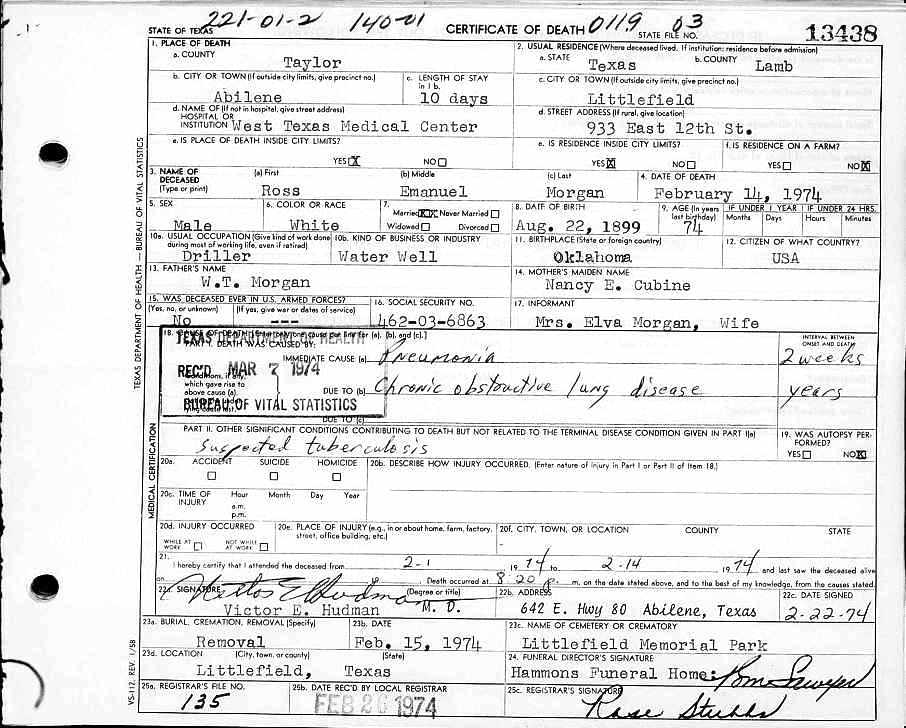 221-01-2 140-01 0119 03
STATE OF TEXAS CERTIFICATE OF DEATH STATE FILE NO. 13438
1. PLACE OF DEATH
a. COUNTY Taylor
2. USUAL RESIDENCE (Where deceased lived. If institution: residence before admission)
a. STATE Texas b. COUNTY Lamb
b. CITY OR TOWN (If outside city limits, give precinct no.) Abilene
c. LENGTH OF STAY in 1b. 10 days
c. CITY OR TOWN (If outside city limits, give precinct no.) Littlefield
d. NAME OF (If not in hospital, give street address) HOSPITAL OR INSTITUTION West Texas Medical Center
d. STREET ADDRESS (If rural, give location) 933 East 12th St.
e. IS PLACE OF DEATH INSIDE CITY LIMITS? YES X NO
e. IS RESIDENCE INSIDE CITY LIMITS? YES X NO
f. IS RESIDENCE ON A FARM? YES NO X
3. NAME OF DECEASED (Type or print) (a) First Ross (b) Middle Emanuel (c) Last Morgan
4. DATE OF DEATH February 14, 1974
5. SEX Male
6. COLOR OR RACE White
7. Married XX Never Married Widowed Divorced
8. DATE OF BIRTH Aug. 22, 1899
9. AGE (In years last birthday) 74 IF UNDER 1 YEAR Months Days IF UNDER 24 HRS. Hours Minutes
10a. USUAL OCCUPATION (Give kind of work done during most of working life, even if retired) Driller
10b. KIND OF BUSINESS OR INDUSTRY Water Well
11. BIRTHPLACE (State or foreign country) Oklahoma
12. CITIZEN OF WHAT COUNTRY? USA
13. FATHER'S NAME W.T. Morgan
14. MOTHER'S MAIDEN NAME Nancy E. Cubine
15. WAS DECEASED EVER IN U.S. ARMED FORCES? (Yes, no, or unknown) No (If yes, give war or dates of service) ---
16. SOCIAL SECURITY NO. 462-03-6863
17. INFORMANT Mrs. Elva Morgan, Wife
18. CAUSE OF DEATH [Enter only one cause per line for (a), (b), and (c).]
PART I. DEATH WAS CAUSED BY:
INTERVAL BETWEEN ONSET AND DEATH
TEXAS DEPARTMENT OF HEALTH
REC'D MAR 7 1974
BUREAU OF VITAL STATISTICS
IMMEDIATE CAUSE (a) Pneumonia 2 weeks
Conditions, if any, which gave rise to above cause (a),
DUE TO (b) Chronic obstructive lung disease years
DUE TO (c)
PART II. OTHER SIGNIFICANT CONDITIONS CONTRIBUTING TO DEATH BUT NOT RELATED TO THE TERMINAL DISEASE CONDITION GIVEN IN PART I(a)
Suspected tuberculosis
19. WAS AUTOPSY PERFORMED? YES NO X
20a. ACCIDENT SUICIDE HOMICIDE
20b. DESCRIBE HOW INJURY OCCURRED. (Enter nature of injury in Part I or Part II of Item 18.)
20c. TIME OF INJURY Hour a.m. p.m. Month Day Year
20d. INJURY OCCURRED WHILE AT WORK NOT WHILE AT WORK
20e. PLACE OF INJURY (e.g., in or about home, farm, factory, street, office building, etc.)
20f. CITY, TOWN, OR LOCATION COUNTY STATE
21. I hereby certify that I attended the deceased from 2-1 1974 to 2-14 1974 and last saw the deceased alive
on Death occurred at 8:20 p. m, on the date stated above, and to the best of my knowledge, from the causes stated.
22a. SIGNATURE Victor E Hudman (Degree or title)
Victor E. Hudman M. D.
22b. ADDRESS 642 E. Hwy 80 Abilene, Texas
22c. DATE SIGNED 2-22-74
23a. BURIAL, CREMATION, REMOVAL (Specify) Removal
23b. DATE Feb. 15, 1974
23c. NAME OF CEMETERY OR CREMATORY Littlefield Memorial Park
23d. LOCATION (City, town, or county) (State) Littlefield, Texas
24. FUNERAL DIRECTOR'S SIGNATURE Hammons Funeral Home: Tom Sawyer
25a. REGISTRAR'S FILE NO. 135
25b. DATE REC'D BY LOCAL REGISTRAR FEB 26 1974
25c. REGISTRAR'S SIGNATURE Rose Stubbs
TEXAS DEPARTMENT OF HEALTH — BUREAU OF VITAL STATISTICS
MEDICAL CERTIFICATION
VS-112, REV. 1/58